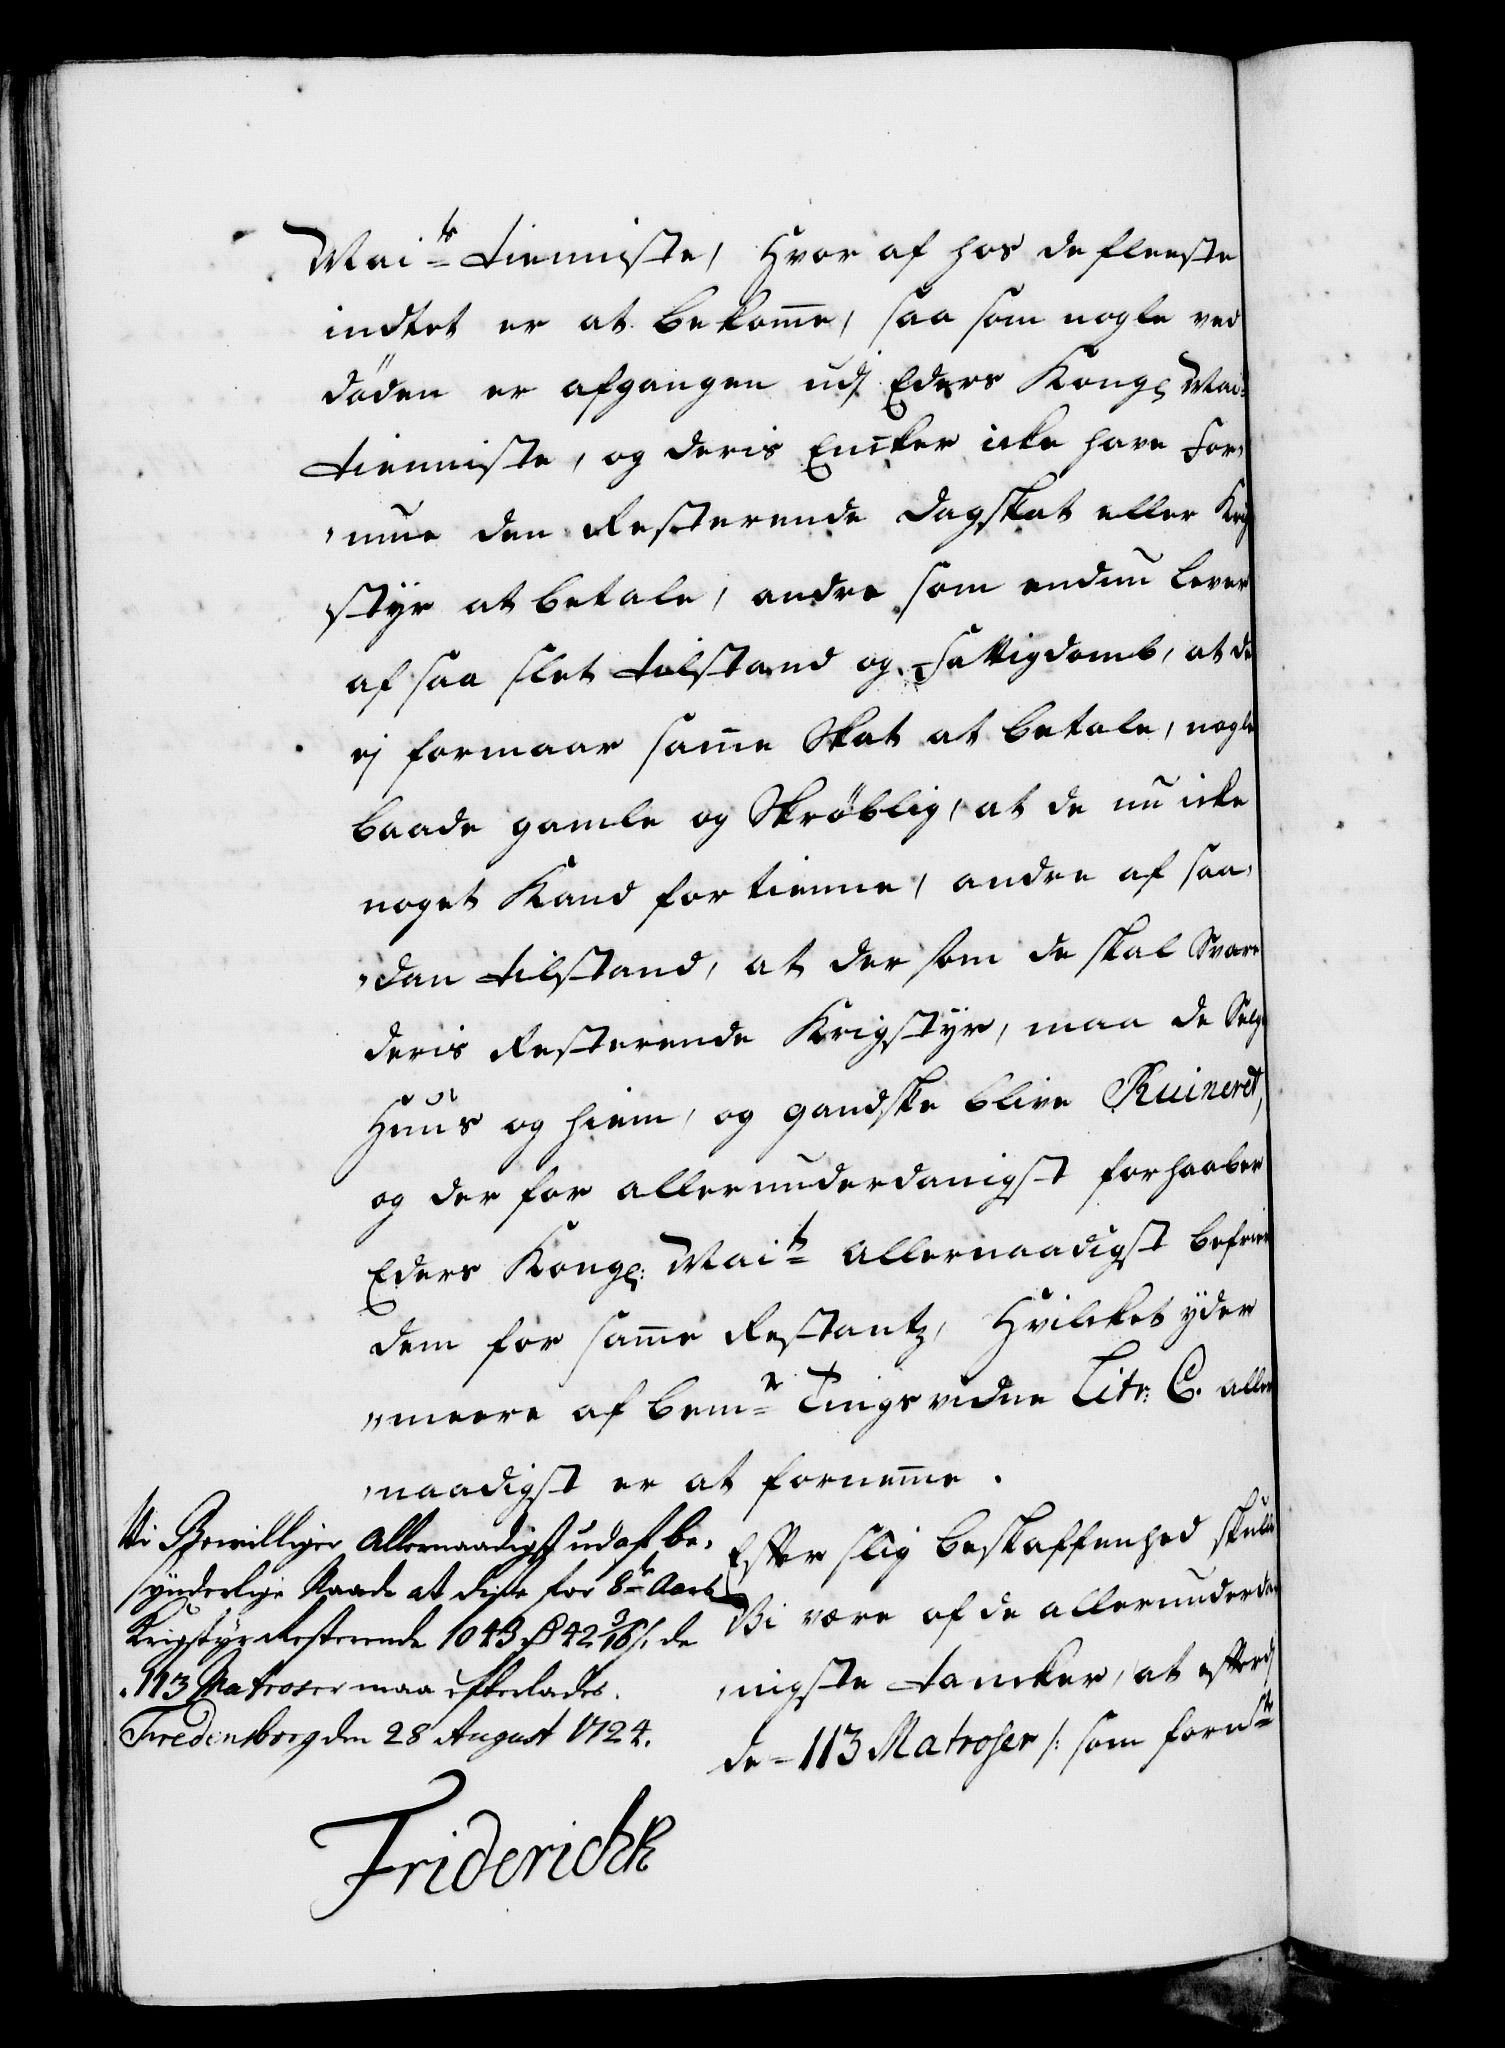 Mai^ts tienniste, Hvor af hos de fleeste
indtet er at bekom̅e, saa som nogle ved
döden er afgangen udj Eders Kongl Mai:
tienniste, og deris Encker icke have For-
-mue den Resterende dagskat eller Krig
styr at betale, andre som endnu lever
af saa slet tilstand og Fattigdomb, at de
ej formaar sam̅e Skat at betale, nogle
baade gamle og Skröblig, at de nu icke
noget Kand fortienne, andre af saa-
-dan tilstand, at der som de skal Svare
deris Resterende Krigstyr, maa de Selge
Huus og hiem, og gandske blive Ruineret,
og der for allerunderdanigst forhaaber
Eders Kongl: Mai^ts Allernaadigst befrier
dem for sam̅e Restantz, Hvilcket yder
-meere af bem^te Tingsvidne Litr: C. aller
-naadigst er at fornem̅e.
Efter slig beskaffenhed skulle
Vi være af de allerunderda-
-nigste tancker, at efterdj
de 113 Matroser /: som forn^te
Vi Bewilliger Allernaadigst ud af be-
synderlige Naade at disse for 8^te Aars
Krigstyr Resterende 1043 rd 42 3/16 s. de
113 Matroser maa efterlades.
Fredensborg den 28 August 1724.
Friderich R